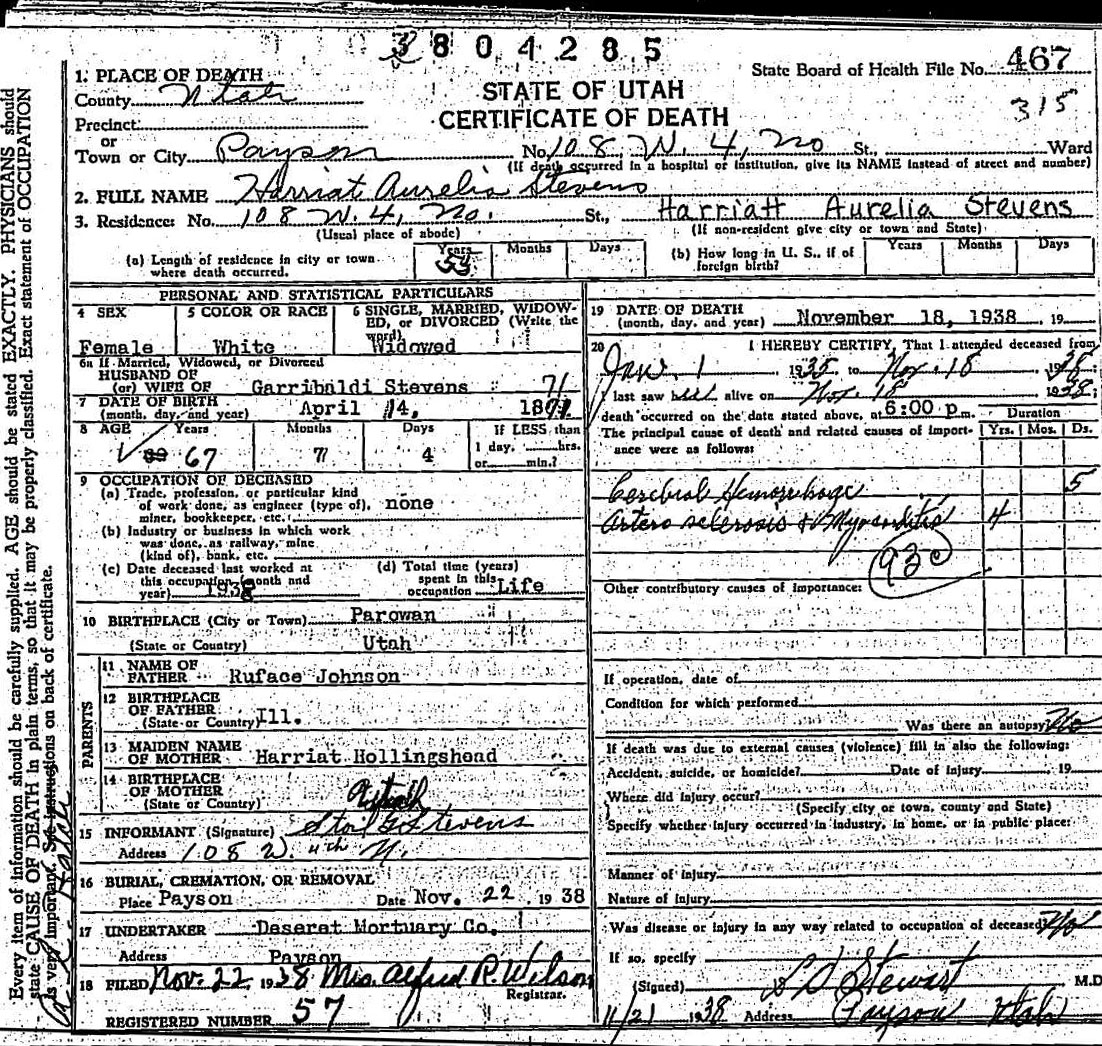 3804285
State Board of Health File No. 467
315
STATE OF UTAH
CERTIFICATE OF DEATH
1. PLACE OF DEATH
County Utah
Precinct
or
Town or City Payson No. 108 W. 4, No St., Ward
(If death occurred in a hospital or institution, give its NAME instead of street and number)
2. FULL NAME Harriat Aurelia Stevens
3. Residence: No. 108 W. 4, No. St., Harriatt Aurelia Stevens
(Usual place of abode) (If non-resident give city or town and State)
(a) Length of residence in city or town where death occurred. Years Months Days
(b) How long in U. S., if of foreign birth? Years Months Days
PERSONAL AND STATISTICAL PARTICULARS
4 SEX 5 COLOR OR RACE 6 SINGLE, MARRIED, WIDOWED, or DIVORCED (Write the word)
Female White Widowed
6a If Married, Widowed, or Divorced
HUSBAND OF
(or) WIFE OF Garribaldi Stevens 71
7 DATE OF BIRTH
(month, day, and year) April 14, 1871
8 AGE Years Months Days If LESS than
1 day, hrs.
67 7 4 or min.?
9 OCCUPATION OF DECEASED
(a) Trade, profession, or particular kind
of work done, as engineer (type of), none
miner, bookkeeper, etc.
(b) Industry or business in which work
was done, as railway, mine
(kind of), bank, etc.
(c) Date deceased last worked at
this occupation (month and
year) 1938
(d) Total time (years)
spent in this
occupation Life
10 BIRTHPLACE (City or Town) Parowan
(State or Country) Utah
PARENTS
11 NAME OF
FATHER Ruface Johnson
12 BIRTHPLACE
OF FATHER
(State or Country) Ill.
13 MAIDEN NAME
OF MOTHER Harriat Hollingshead
14 BIRTHPLACE
OF MOTHER
(State or Country) Utah
15 INFORMANT (Signature) Stevens
Address 108 W. 4th N.
16 BURIAL, CREMATION, OR REMOVAL
Place Payson Date Nov. 22 1938
17 UNDERTAKER Deseret Mortuary Co.
Address Payson
18 FILED Nov. 22 1938 Mrs. Alfred R. Wilson
Registrar.
REGISTERED NUMBER 57
19 DATE OF DEATH
(month, day, and year) November 18, 1938 , 19
20 I HEREBY CERTIFY, That I attended deceased from
Jan. 1 1935 to Nov. 18 1938
I last saw alive on Nov. 18 1938;
death occurred on the date stated above, at 6:00 p.m.
Duration
The principal cause of death and related causes of importance were as follows: Yrs. Mos. Ds.
Cerebral Hemorrhage 5
Artero sclerosis & Myocarditis 4
93c
Other contributory causes of importance:
If operation, date of
Condition for which performed
Was there an autopsy? No
If death was due to external causes (violence) fill in also the following:
Accident, suicide, or homicide? Date of injury , 19
Where did injury occur?
(Specify city or town, county and State)
Specify whether injury occurred in industry, in home, or in public place:
Manner of injury
Nature of injury
Was disease or injury in any way related to occupation of deceased? No
If so, specify
(Signed) L D Stewart M.D.
11/21 1938 Address Payson Utah
Every item of information should be carefully supplied. AGE should be stated EXACTLY. PHYSICIANS should
state CAUSE OF DEATH in plain terms, so that it may be properly classified. Exact statement of OCCUPATION
is very important. See instructions on back of certificate.